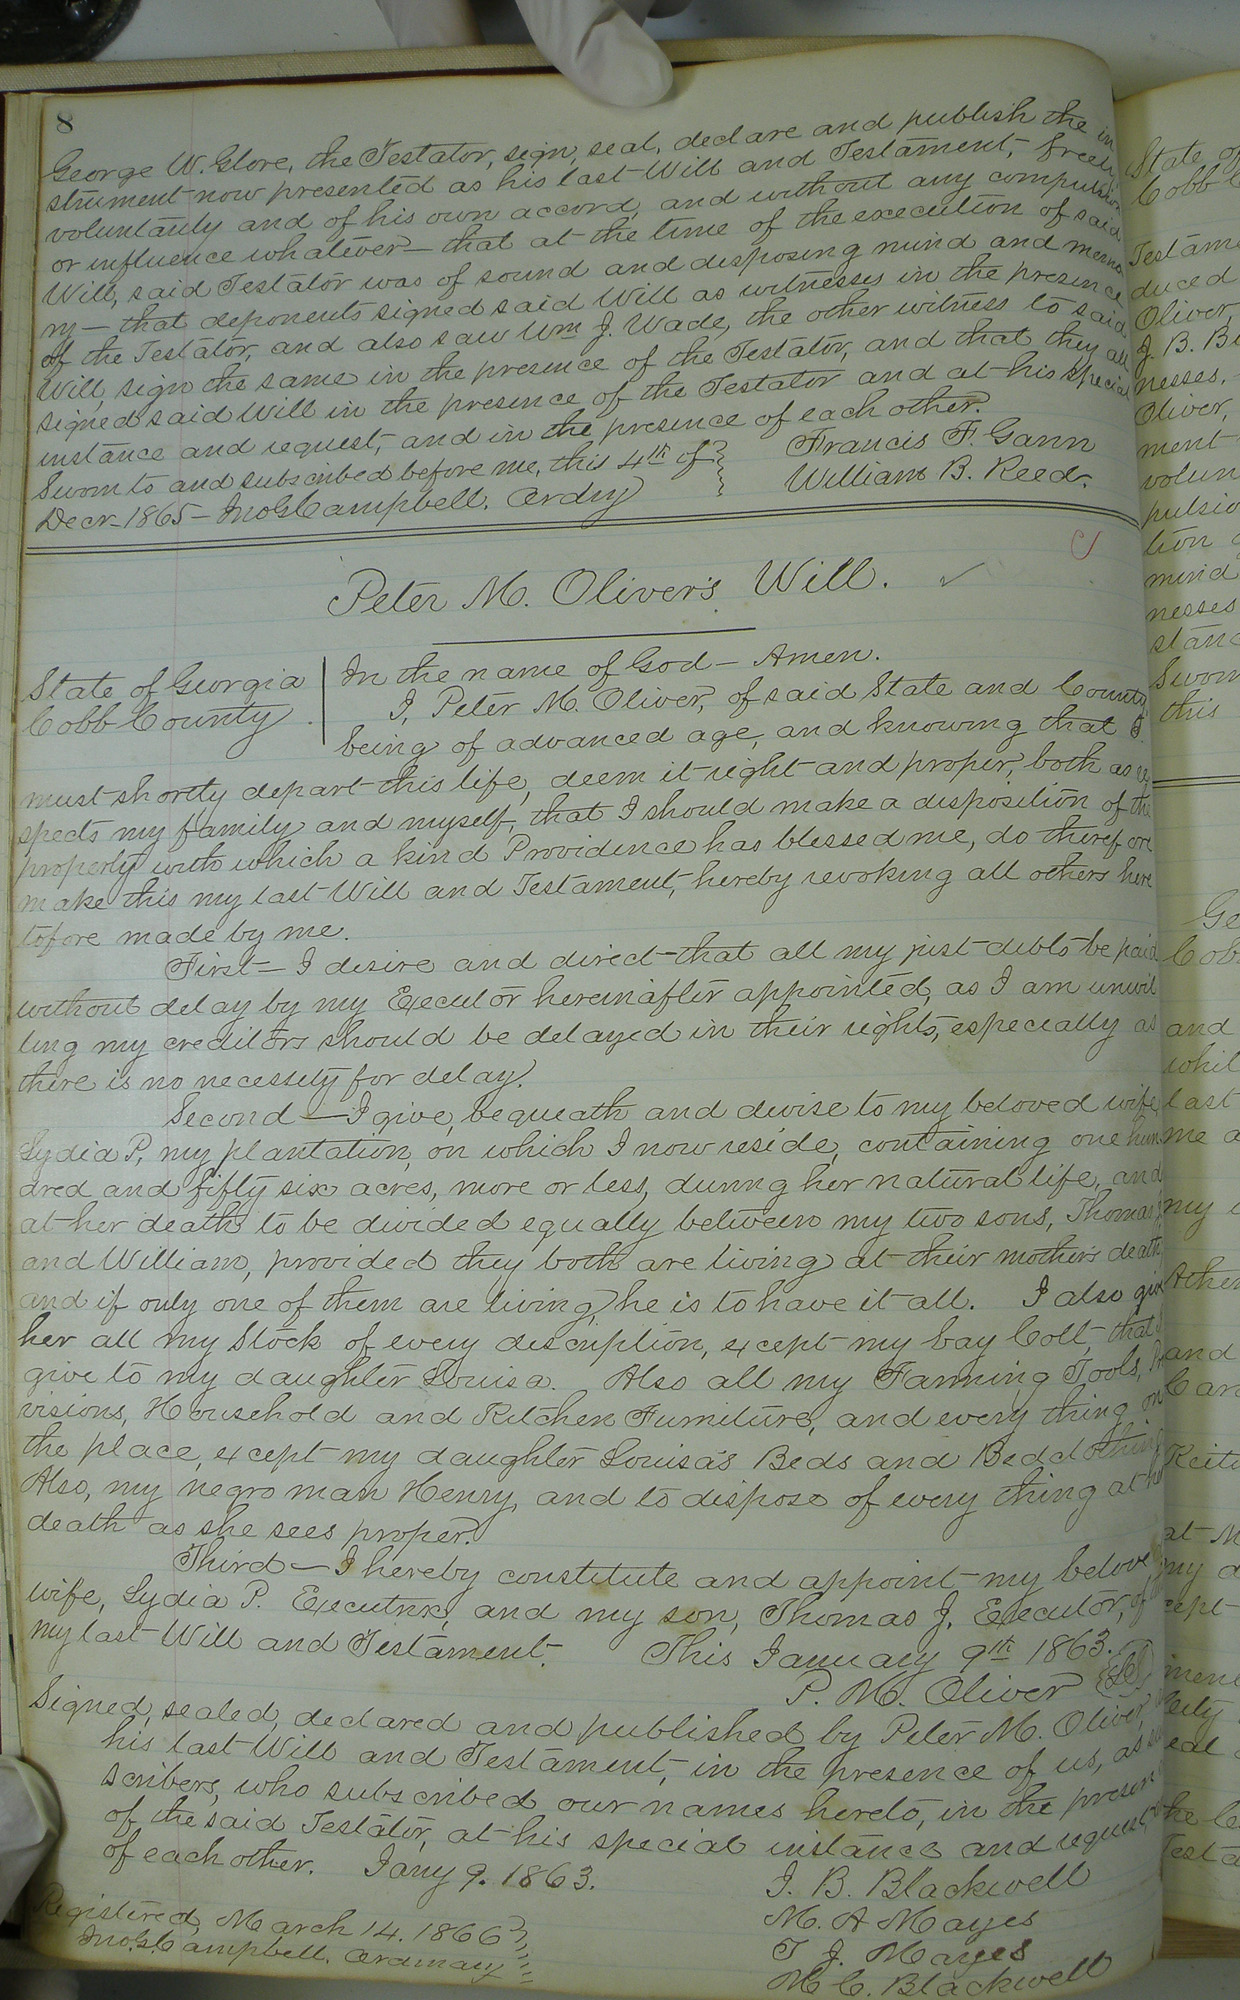 8
George W. Glore, the Testator, sign, seal, declare and publish the in
strument now presented as his last Will and Testament, freely,
voluntarily and of his own accord, and without any compulsion
or influence whatever — that at the time of the execution of said
Will, said Testator was of sound and disposing mind and memo
ry — that deponents signed said Will as witnesses in the presence
of the Testator, and also saw Wm J. Wade, the other witness to said
Will, sign the same in the presence of the Testator, and that they all
signed said Will in the presence of the Testator and at his special
instance and request, and in the presence of each other.
Sworn to and subscribed before me, this 4th of
Decr 1865 — Jno G. Campbell, Ordry
Francis F. Gann
William B. Reed.
Peter M. Oliver's Will.
State of Georgia
Cobb County
In the name of God — Amen.
I, Peter M. Oliver, of said State and County,
being of advanced age, and knowing that I
must shortly depart this life, deem it right and proper, both as re
spects my family and myself, that I should make a disposition of the
property with which a kind Providence has blessed me, do therefore
make this my last Will and Testament, hereby revoking all others here
tofore made by me.
First — I desire and direct that all my just debts be paid
without delay by my Executor hereinafter appointed, as I am unwil
ling my creditors should be delayed in their rights, especially as
there is no necessity for delay.
Second — I give, bequeath and devise to my beloved wife
Lydia P, my plantation, on which I now reside, containing one hun
dred and fifty six acres, more or less, during her natural life, and
at her death to be divided equally between my two sons, Thomas J.
and William, provided they both are living at their mother's death,
and if only one of them are living, he is to have it all. I also give
her all my Stock of every description, except my bay Colt, that I
give to my daughter Louisa. Also all my Farming Tools, Pro
visions, Household and Kitchen Furniture, and every thing on
the place, except my daughter Louisa's Beds and Bedclothing
Also, my negro man Henry, and to dispose of every thing at her
death as she sees proper.
Third — I hereby constitute and appoint my beloved
wife, Lydia P. Executrix, and my son, Thomas J. Executor, of
my last Will and Testament. This January 9th 1863.
P. M. Oliver {LS}
Signed, sealed, declared and published by Peter M. Oliver,
his last Will and Testament, in the presence of us, as sub
scribers, who subscribed our names hereto, in the presence
of the said Testator, at his special instance and request,
of each other. Jany 9. 1863.
J. B. Blackwell
M. A Mayes
T J. Mayes
M. C. Blackwell
Registered, March 14. 1866
Jno. G. Campbell, Ordinary
State of
Cobb
Testame
duced
Oliver,
J. B. Bl
nesses,
Oliver,
ment
volun
pulsio
tion
mind
nesses
stanc
Sworn
this
Ge
Cobb
and
whil
last
me a
my
Ather
and
Car
at M
my d
cept